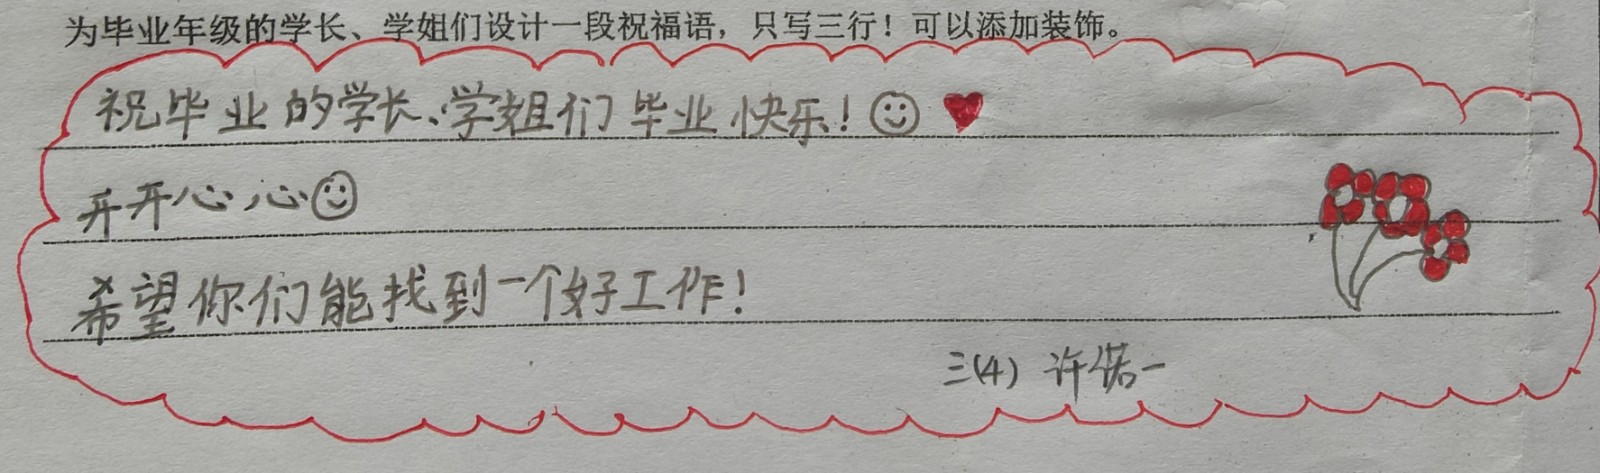 为毕业年级的学长、学姐们设计一段祝福语，只写三行！可以添加装饰。
祝毕业的学长、学姐们毕业快乐！
开开心心
希望你们能找到一个好工作！
三(4) 许偌一